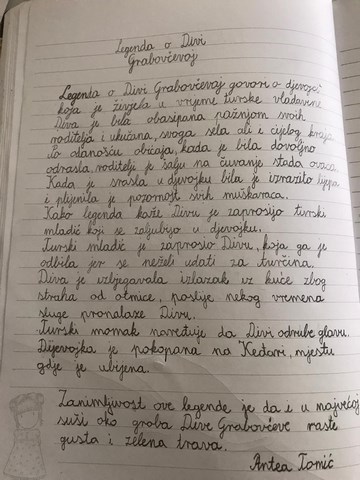 Legenda o Divi
Grabovčevoj
Legenda o Divi Grabovčevoj govori o djevojci
koja je živjela u vrijeme turske vladavine.
Diva je bila obasipana pažnjom svih
roditelja i ukućana, svoga sela ali i cijelog kraja.
Po odanošću običaja, kada je bila dovoljno
odrasla, roditelji je šalju na čuvanje stada ovaca.
Kada je srasla u djevojku bila je izrazito lijepa
i plijenila je pozornost svih muškaraca.
Kako legenda kaže Divu je zaprosijo turski
mladić koji se zaljubijo u djevojku.
Turski mladić je zaprosio Divu, koja ga je
odbila jer se neželi udati za turčina.
Diva je izbjegavala izlazak iz kuće zbog
straha od otmice, poslije nekog vremena
sluge pronalaze Divu.
Turski momak naređuje da Divi odrube glavu.
Dijevojka je pokopana na Kedari, mjestu
gdje je ubijena.
Zanimljivost ove legende je da i u najvećoj
suši oko groba Dive Grabovčeve raste
gusta i zelena trava.
Antea Tomić